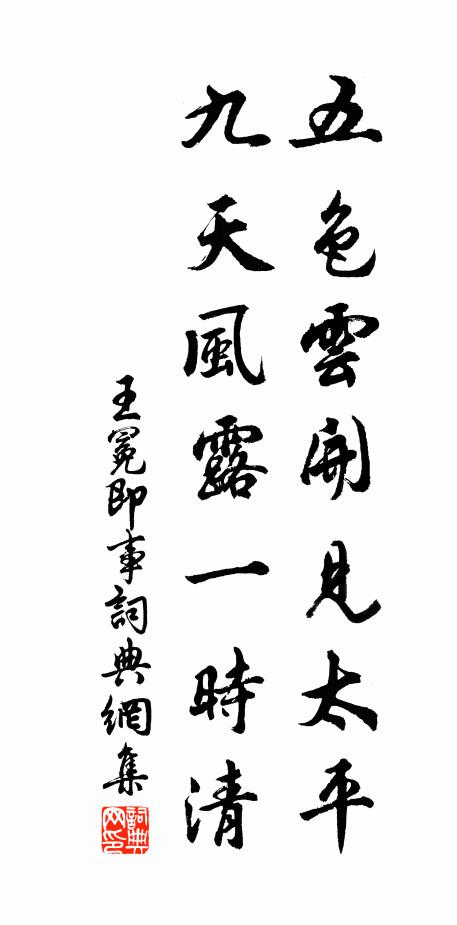 五色雲開見太平
九天風露一時清
王冕即事詞典網集
詞典
网印